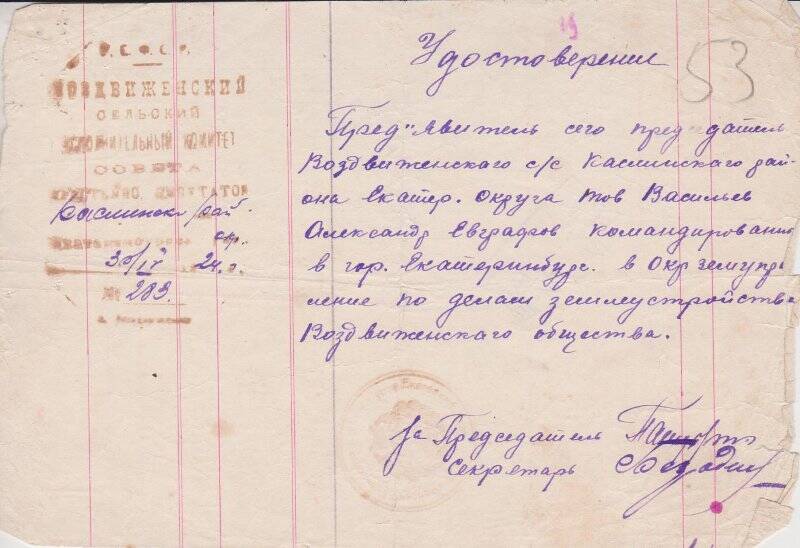 19
53
Р.С.Ф.С.Р.
ВОЗДВИЖЕНСКИЙ
СЕЛЬСКИЙ
ИСПОЛНИТЕЛЬНЫЙ КОМИТЕТ
СОВЕТА
ДЕПУТАТОВ
Каслинск рай
окр.
30/IV 24 г.
№ 203.
Удостоверение
Пред"явитель сего председатель
Воздвиженского с/с Каслинского рай-
она Екатер. Округа тов Васильев
Александр Евграфов командирован
в гор. Екатеринбург. в Окрземупра
вление по делам землеустройства
Воздвиженского общества.
за Председатель
Секретарь